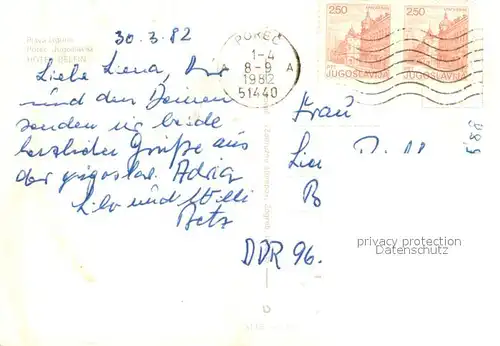 30.3.82
Plava laguna
Hotel Jugoslavija
HOTEL DELFIN
Liebe Liena, Dir
und den Deinen
senden wir beide
herzliche Grüße aus
der jugoslaw. Adria
Lilo und Willi
Betz
POREČ
1-4
8-9 A
1982
51440
2.50 2.50
JUGOSLAVIJA JUGOSLAVIJA
Frau
DDR 96.
privacy protection
Datenschutz